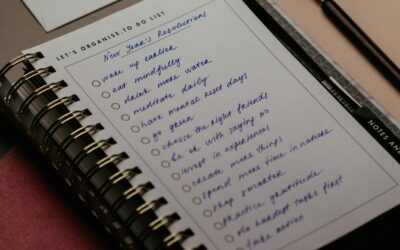 LET'S ORGANISE-TO DO LIST
New Year's Resolutions
wake up earlier
eat mindfully
drink more water
meditate daily
have mental reset days
go green
choose the right friends
be ok with saying no
invest in experiences
create more things
spend more time in nature
shop smarter
practice gratitude
do hardest tasks first
take action
NOTES AN